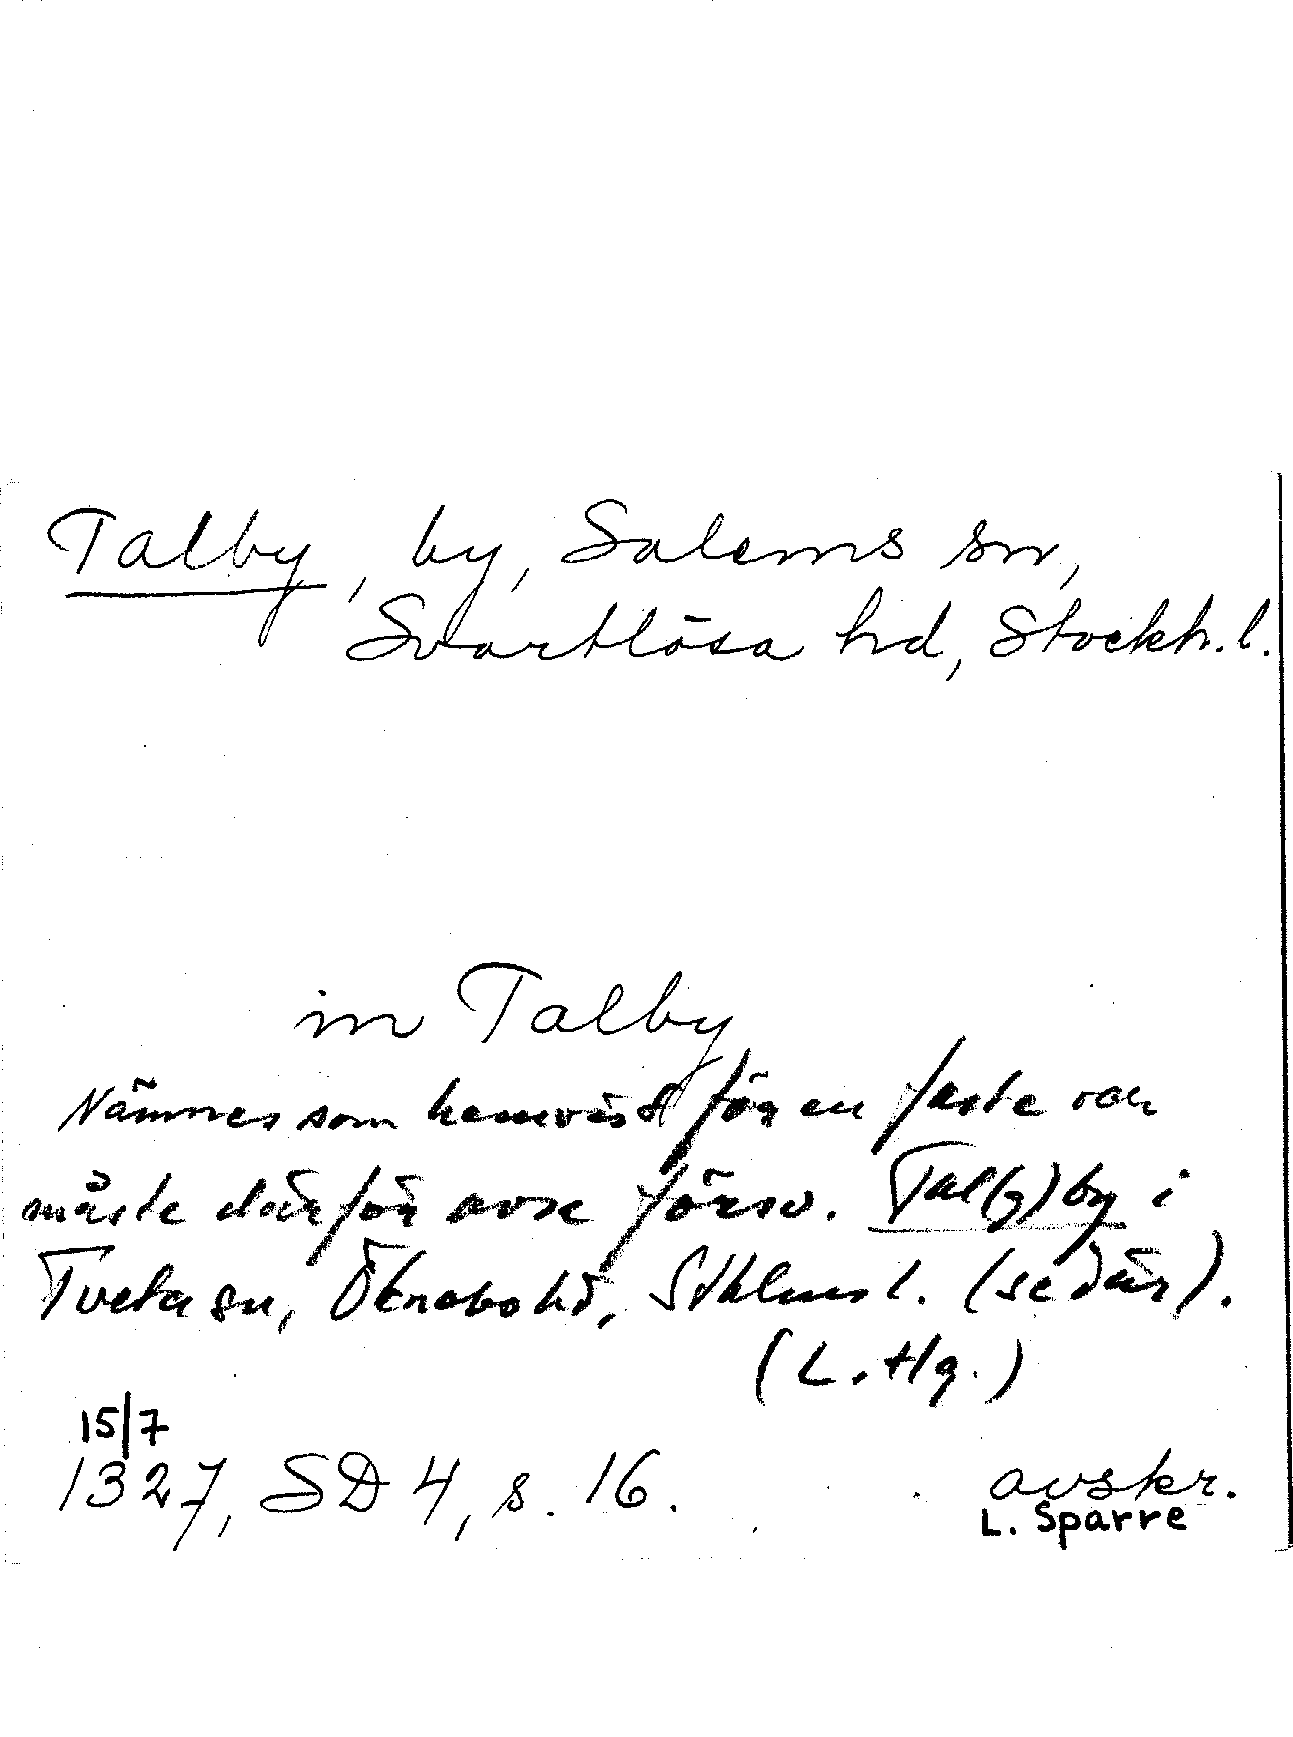 Talby, by, Salems sn,
Svartlösa hd, Stockh. l.
in Talby
Nämnes som hemvist för en faste och
måste därför avse försv. Tal(g)by i
Tveta sn, Öknebo hd, Sthlms l. (se där).
(L. Hg.)
15/7
1327, SD 4, s. 16. avskr.
L. Sparre